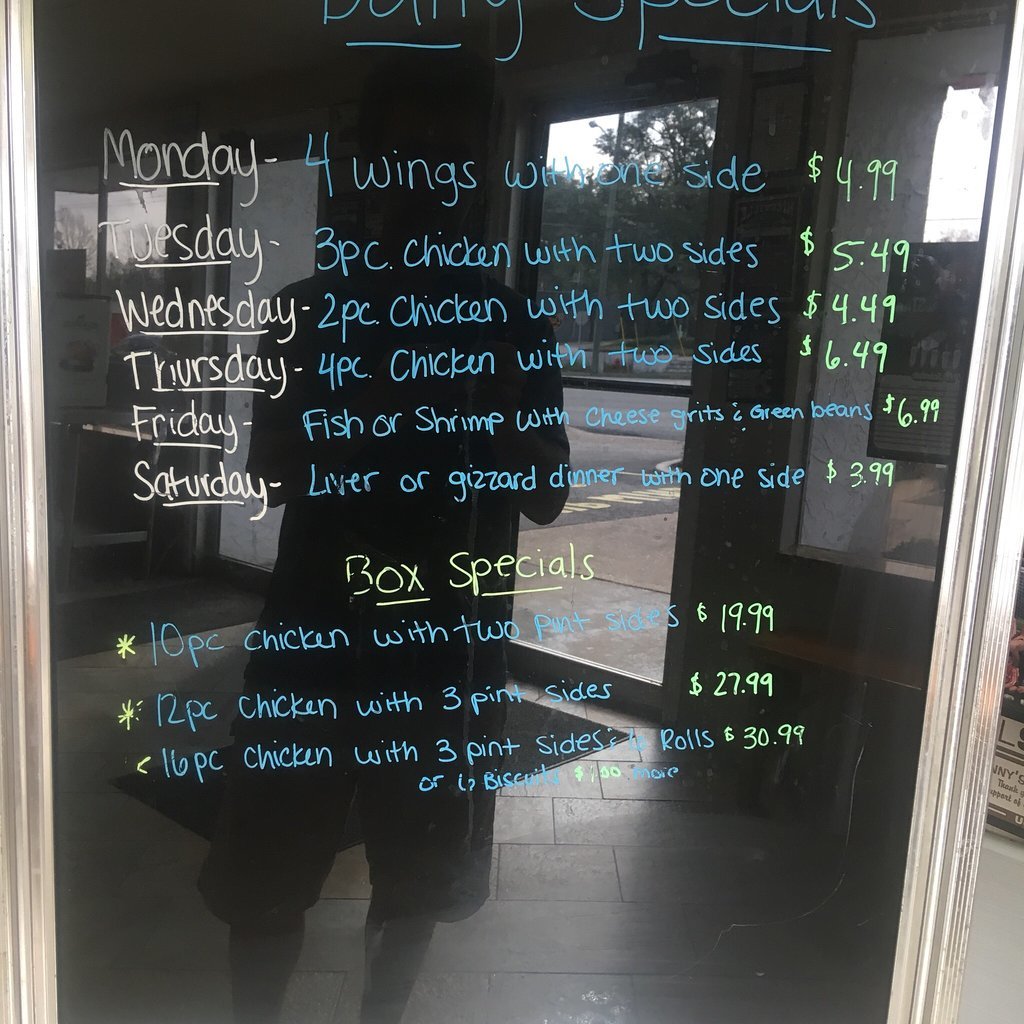 Daily Specials
Monday- 4 wings with one side $4.99
Tuesday- 3pc. Chicken with two sides $5.49
Wednesday- 2pc. Chicken with two sides $4.49
Thursday- 4pc. Chicken with two sides $6.49
Friday- Fish or Shrimp with cheese grits & Green beans $6.99
Saturday- Liver or gizzard dinner with one side $3.99
Box Specials
* 10pc chicken with two pint sides $19.99
* 12pc Chicken with 3 pint sides $27.99
16pc Chicken with 3 pint sides & 6 Rolls $30.99
or 6 Biscuits $1.00 more
NNY'S
Thank
upport of